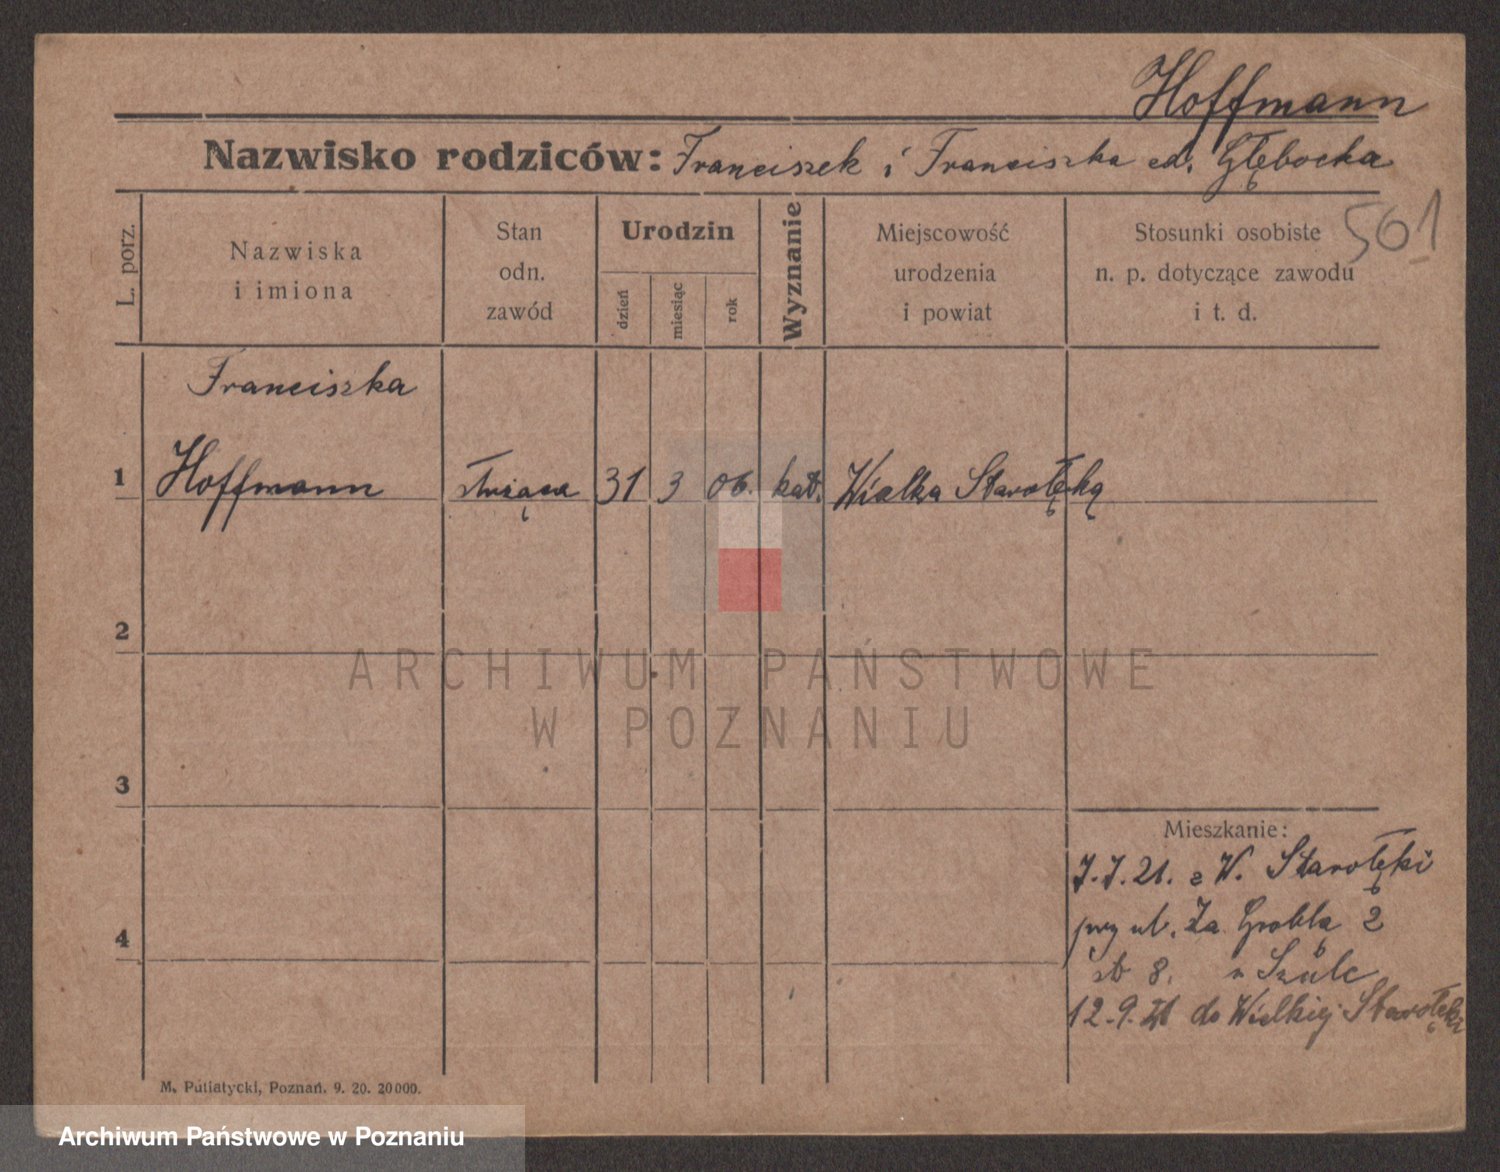 Hoffmann
Nazwisko rodziców: Franciszek i Franciszka Głębocka
561
L. porz.
Nazwiska
i imiona
Stan
odn.
zawód
Urodzin
dzień
miesiąc
rok
Wyznanie
Miejscowość
urodzenia
i powiat
Stosunki osobiste
n. p. dotyczące zawodu
i t. d.
Franciszka
1 Hoffmann służąca 31 3 06. kat. Wielka Starołęka
2
3
4
Mieszkanie:
7.7.21. z W. Starołęki
przy ul. Za Groblą 2
8. u Szulc
12.9.21 do Wielkiej Starołęki
M. Putiatycki, Poznań. 9. 20. 20000.
ARCHIWUM PAŃSTWOWE
W POZNANIU
Archiwum Państwowe w Poznaniu